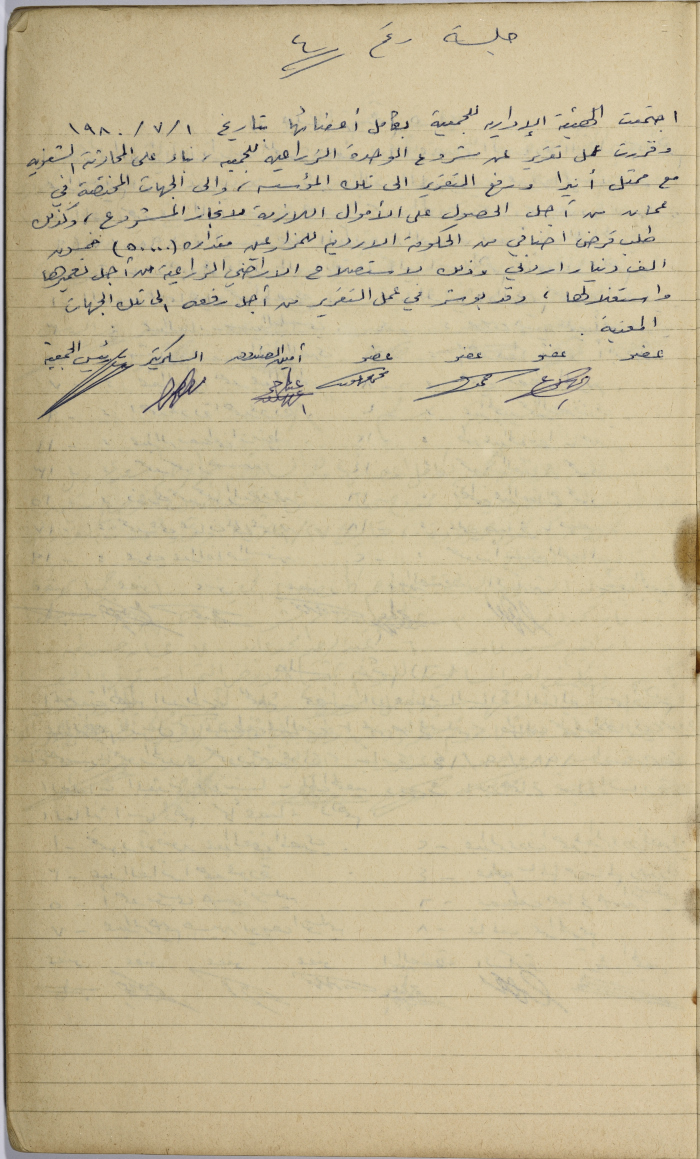 جلسة رقم ٤
اجتمعت الهيئة الإدارية للجمعية بكامل أعضائها بتاريخ ١ / ٧ / ١٩٨٠
وقررت عمل تقرير عن مشروع الوحدة الزراعية للجمعية ، بناء على المحادثة الشفوية
مع ممثل أنيرا ورفع التقرير الى تلك المؤسسة ، والى الجهات المختصة في
عمان من أجل الحصول على الأموال اللازمة لانجاز المشروع ، وكذلك
طلب قرض اضافي من الحكومة الاردنية للمزارعين مقداره (٥٠٠٠٠) خمسون
الف دينار اردني وذلك لاستصلاح الاراضي الزراعية من أجل تعميرها
واستغلالها ، وقد بوشر في عمل التقرير من أجل رفعه الى تلك الجهات
المعنية .
عضو عضو عضو عضو أمين الصندوق السكرتير رئيس الجمعية